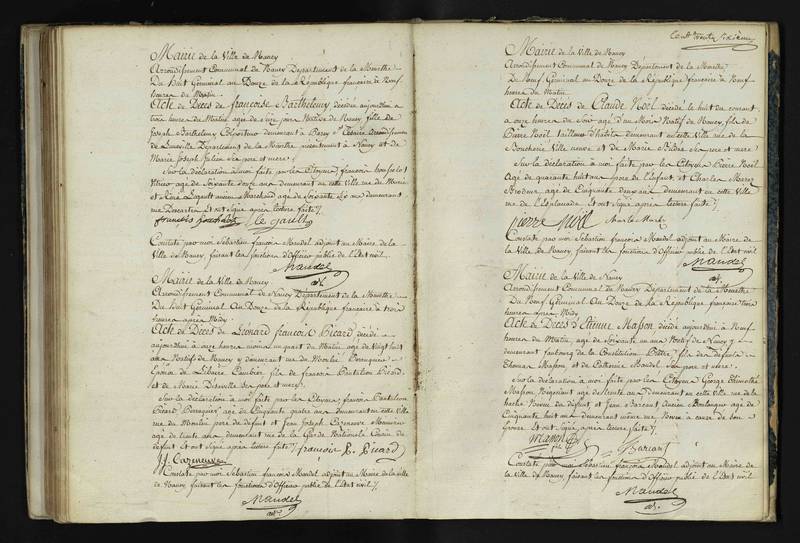 Mairie de la Ville de Nancy
Arrondissement Communal de Nancy Département de la Meurthe
Du huit Germinal an Douze de la République française à Neuf
heures du Matin
Acte de Décès de françoise Barthelemy décédée aujourd'hui à
trois heures du Matin, age de seize jours Native de Nancy fille de
Joseph Barthelemy demeurant à
de Luneville Département de la Meurthe présentement à Nancy et de
Marie Joseph ses pere et mere
Sur la déclaration à moi faite par les Citoyens françois
age de Soixante douze ans demeurant en cette Ville rue de
et ancien Marchand age de Soixante ans demeurant
rue et ont signé après lecture faite
françois le gault
Constaté par moi Sébastien françois Mandel adjoint au Maire de la
Ville de Nancy, faisant les fonctions d'Officier public de l'Etat civil
Mandel
adj.
Mairie de la Ville de Nancy
Arrondissement Communal de Nancy Département de la Meurthe
Du huit Germinal An Douze de la République française à trois
heures après Midy
Acte de Décès de Léonard françois Picard décédé
aujourd'hui à onze heures moins un quart du Matin, age de Vingt huit
ans Natif de Nancy y demeurant rue du Moulin Perruquier
Epoux de fils de francois Pantaléon Picard
et de Marie ses pere et mere
Sur la déclaration à moi faite par les Citoyens francois Pantaléon
Picard Perruquier age de Cinquante quatre ans demeurant en cette Ville
rue du Moulin pere du défunt et Jean Joseph Cazeneuve
age de trente ans demeurant rue de la Garde Nationale Cousin du
défunt et ont signé après lecture faite françois P. Picard
J. Cazeneuve
Constaté par moi Sébastien françois Mandel adjoint au Maire de la Ville
de Nancy faisant les fonctions d'Officier public de l'Etat civil
Mandel
adj.
Cent trente sixième
Mairie de la Ville de Nancy
Arrondissement Communal de Nancy Département de la Meurthe
Du Neuf Germinal an Douze de la République française à Neuf
heures du Matin
Acte de Décès de Claude Noël décédé le huit du courant
à onze heures du Soir age d'un Mois Natif de Nancy, fils de
Pierre Noël tailleur d'habits demeurant en cette Ville rue de la
Boucherie Ville neuve et de Marie ses pere et mere
Sur la déclaration à moi faite par les Citoyens Pierre Noël
Agé de quarante huit ans pere de l'enfant et Charles
Brodeur age de Cinquante deux ans demeurant en cette Ville
rue de l'Esplanade et ont signé après lecture faite
pierre noël Charle
Constaté par moi Sébastien françois Mandel adjoint au Maire de
la Ville de Nancy, faisant les fonctions d'Officier public de l'Etat civil
Mandel
adj.
Mairie de la Ville de Nancy
Arrondissement Communal de Nancy Département de la Meurthe
Du Neuf Germinal An Douze de la République française trois
heures après Midy
Acte de Décès d'Etienne Masson décédé aujourd'hui à Neuf
heures du Matin, age de Soixante un ans Natif de Nancy y
demeurant faubourg de la Constitution fils des défunts
Thomas Masson, et de Catherine Mandel ses pere et mere
Sur la déclaration à moi faite par les Citoyens George
Masson Négociant age de trente ans demeurant en cette Ville rue de la
Neveu du défunt et Jean Ancien Boulanger age de
Cinquante huit ans demeurant même rue Neveu à cause de son
Epouse Et ont signé après lecture faite
masson
Constaté par moi Sébastien françois Mandel adjoint au Maire de
la Ville de Nancy, faisant les fonctions d'Officier public de l'Etat civil
Mandel
adj.